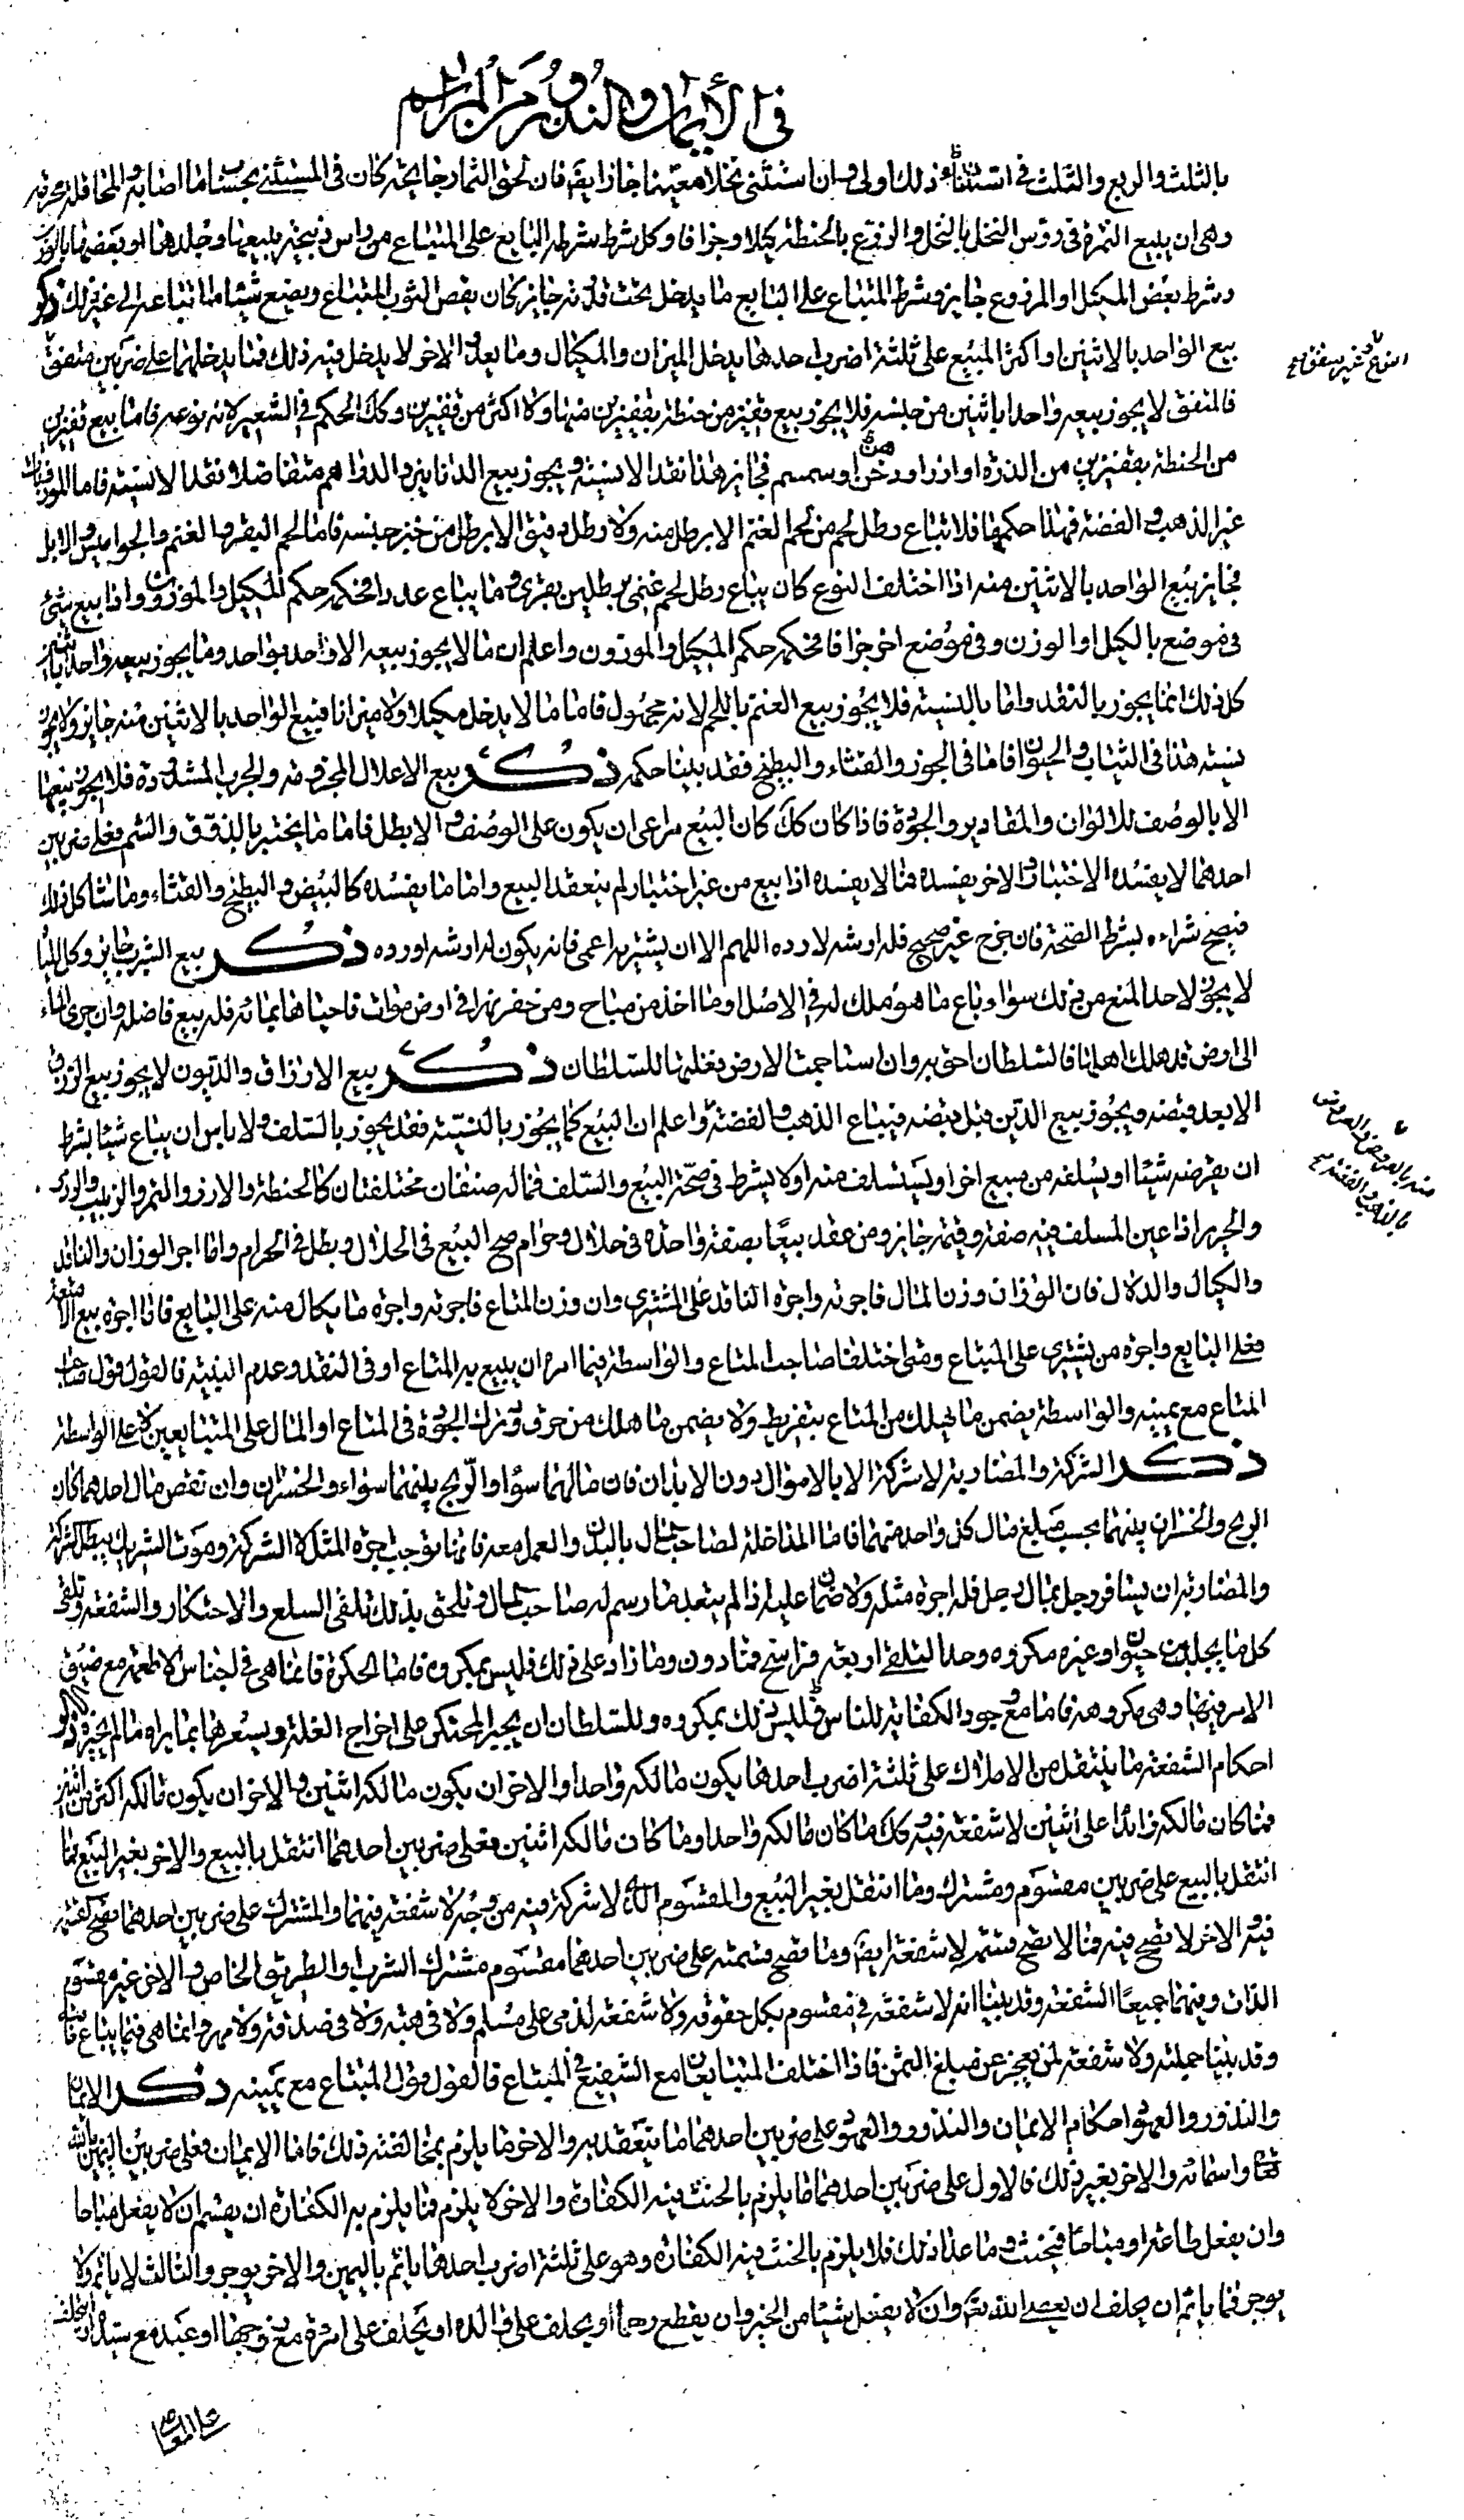 في الأيمان والنذور من المراسم
بالثلث والربع والثلث في استثناء ذلك اولى وان استثنى نخلا معينا جاز ايضا فان لحق الثمار جايحة كان في المستثنى بحساب ما اصابه والمحاقلة محرمة
وهى ان يبيع الثمرة في رؤس النخل بالنخل والزرع بالحنطة كيلا وجزافا وكل شرط شرطه البايع على المبتاع من راس ذبيحة يبيعها وجلدها او بعضها بالوزن
وشرط بعض المكيل او المزروع جايز وشرط المبتاع على البايع ما يدخل تحت قدرته جايز كان يقص الثوب المبتاع ويصنع شيئا مما ابتاعه الى غير ذلك ذكر
بيع الواحد بالاثنين او اكثر المبيع على ثلثة اضرب احدها يدخل الميزان والمكيال وما يعد والاخر لا يدخل فيه ذلك فما يدخلهما على ضربين متفق
النوع وغير متفق خ
فالمتفق لا يجوز بيعه واحدا باثنين من جنسه فلا يجوز بيع قفيز من حنطة بقفيزين منها ولا اكثر من قفيزين وكك الحكم في الشعير لانه نوعه فاما بيع قفيزين
من الحنطة بقفيزين من الذرة او ارز او دخن او سمسم فجايز هذا نقدا لا نسيئة ويجوز بيع الدنانير والدراهم متفاضلا نقدا لا نسيئة فاما الموزونات
غير الذهب والفضة فهذا حكمها فلا تباع رطل لحم من لحم الغنم الا برطل منه ولا رطل دقيق الا برطل من خبز جنسه فاما لحم البقر والغنم والجواميس والابل
فجايز بيع الواحد بالاثنين منه اذا اختلف النوع كان يباع رطل لحم غنمي برطلين بقرى وما يباع عددا فحكمه حكم المكيل والموزون واذا بيع شئ
في موضع بالكيل او الوزن وفي موضع اخر جزافا فحكمه حكم المكيل والموزون واعلم ان ما لا يجوز بيعه الا واحد بواحد وما يجوز بيعه واحدا باثنين
كل ذلك انما يجوز بالنقد واما بالنسيئة فلا يجوز بيع الغنم باللحم لانه مجهول فاما ما لا يدخل مكيلا ولا ميزانا فبيع الواحد بالاثنين منه جايز ولا يجوز
نسيئة هذا في الثياب والحيوان فاما في الجوز والقثاء والبطيخ فقد بينا حكمه ذكر بيع الاعدال المحزومة والجرب المشدودة فلا يجوز بيعها
الا بالوصف للالوان والمقادير والجودة فاذا كان كك كان البيع مراعى ان يكون على الوصف والا بطل فاما ما يختبر بالذوق والشم فعلى ضربين
احدهما لا يفسده الاختبار والاخر يفسده فما لا يفسده اذا بيع من غير اختبار لم ينعقد البيع واما ما يفسده كالبيض والبطيخ والقثاء وما شاكل ذلك
فيصح شراءه بشرط الصحة فان خرج غير صحيح فله ارشه لا رده اللهم الا ان يشتريه اعمى فانه يكون له ارشه او رده ذكر بيع الشرب جايز وكل المياه
لا يجوز لاحد المنع من ذلك سوا وباع ما هو ملك له في الاصل او ما اخذ من مباح ومن حفر نهرا في ارض موات فاحياها بمائه فله بيع فاضله وان جرى الماء
الى ارض قد هلك اهلها فالسلطان احق به وان استاجمت الارض فغلتها للسلطان ذكر بيع الارزاق والديون لا يجوز بيع الرزق
الا بعد قبضه ويجوز بيع الدين قبل قبضه فيباع الذهب والفضة واعلم ان البيع كما يجوز بالنسيئة فقد يجوز بالسلف ولا باس ان يبتاع شيئا بشرط
منه بالعروض والعروض
بالذهب والفضة خ
ان يقرضه شيئا او يسلفه من مبيع اخر او يستسلف منه اولا يشرط في صحة البيع والسلف فماله صنفان مختلفتان كالحنطة والارز والتمر والزبيب والبرد
والحرير اذا عين المسلف فيه صفة وقيمة جايز ومن عقد بيعا بصفقة واحدة في حلال وحرام صح البيع في الحلال وبطل في الحرام واما اجر الوزان والناقد
والكيال والدلال فان الوزان وزن المال فاجرته واجرة الناقد على المشترى وان وزن المتاع فاجرته واجرة ما يكال منه على البايع فاذا اجرة بيع الامتعة
فعلى البايع واجرة من يشترى على المبتاع ومتى اختلفا صاحب المتاع والواسطة فيما امره ان يبيع به المتاع او في النقد وعدم البينة فالقول قول صاحب
المتاع مع يمينه والواسطة يضمن ما يهلك من المتاع بتفريط ولا يضمن ما هلك من حرق ودرك الجودة في المتاع او المال على المتبايعين لا على الواسطة
ذكر الشركة والمضاربة لا شركة الا بالاموال دون الابدان فان مالهما سواء والربح بينهما سواء والخسران وان نقص مال احدهما كان
الربح والخسران بينهما بحسب مبلغ مال كل واحد منهما فاما المداخلة لصاحب المال بالبدن والعمل معه فانها توجب اجرة المثل لا الشركة وموت الشريك يبطل الشركة
والمضاربة ان يسافر رجل بمال رجل فله اجرة مثله ولا ضمان عليه اذا لم يتعد ما رسم له صاحب المال ويلحق بذلك تلقى السلع والاحتكار والشفعة وتلقى
كل ما يجلب من حيوان وغيره مكروه وحد التلقى اربعة فراسخ فما دون وما زاد على ذلك فليس بمكروه فاما الحكرة فانما هى في اجناس الاطعمة مع ضيق
الامر فيها وهى مكروهة فاما مع وجود الكفاية للناس فليس ذلك بمكروه وللسلطان ان يجبر المحتكر على اخراج الغلة ويسعرها بما يراه ما لم يخسره ذكر
احكام الشفعة ما ينتقل من الاملاك على ثلثة اضرب احدها يكون مالكه واحدا والاخر ان يكون مالكه اثنين والاخر ان يكون مالكه اكثر من اثنين
فما كان مالكه زائدا على اثنين لا شفعة فيه وكك ما كان مالكه واحدا وما كان مالكه اثنين فعلى ضربين احدهما انتقل بالبيع والاخر بغير البيع فما
انتقل بالبيع على ضربين مقسوم ومشترك وما انتقل بغير البيع والمقسوم الذى لا شركة فيه من وجه لا شفعة فيهما والمشترك على ضربين احدهما تصح القسمة
فيه والاخر لا تصح فيه فما لا تصح قسمته لا شفعة ايضا وما تصح قسمته على ضربين احدهما مقسوم مشترك الشرب او الطريق الخاص والاخر غير مقسوم
الذات وفيهما جميعا الشفعة وقد بينا انه لا شفعة في مقسوم بكل حقوقه ولا شفعة لذمى على مسلم ولا في هبة ولا في صدقة ولا مهر وانما هى فيما يباع
وقد بينا جملته ولا شفعة لمن يعجز عن مبلغ الثمن فاذا اختلف المتبايعان مع الشفيع في المبتاع فالقول قول المبتاع مع يمينه ذكر الايمان
والنذور والعهود احكام الايمان والنذور والعهود على ضربين احدهما ما ينعقد به والاخر ما يلزم بمخالفته ذلك فاما الايمان فعلى ضربين اليمين بالله
تعالى واسمائه والاخر بغير ذلك فالاول على ضربين احدهما ما يلزم بالحنث فيه الكفارة والاخر لا يلزم فما يلزم به الكفارة ان يقسم ان لا يفعل مباحا
وان يفعل طاعة او مباحا فيحنث وما عدا ذلك فلا يلزم بالحنث فيه الكفارة وهو على ثلثة اضرب احدها ياثم باليمين والاخر يوجر والثالث لا ياثم ولا
يوجر فما ياثم ان يحلف ان يعصى الله تعالى وان لا يفعل شيئا من الخير وان يقطع رحما او يحلف على والده او يحلف على امرة مع زوجها او عبد مع سيده او يحلف
على المعاصى